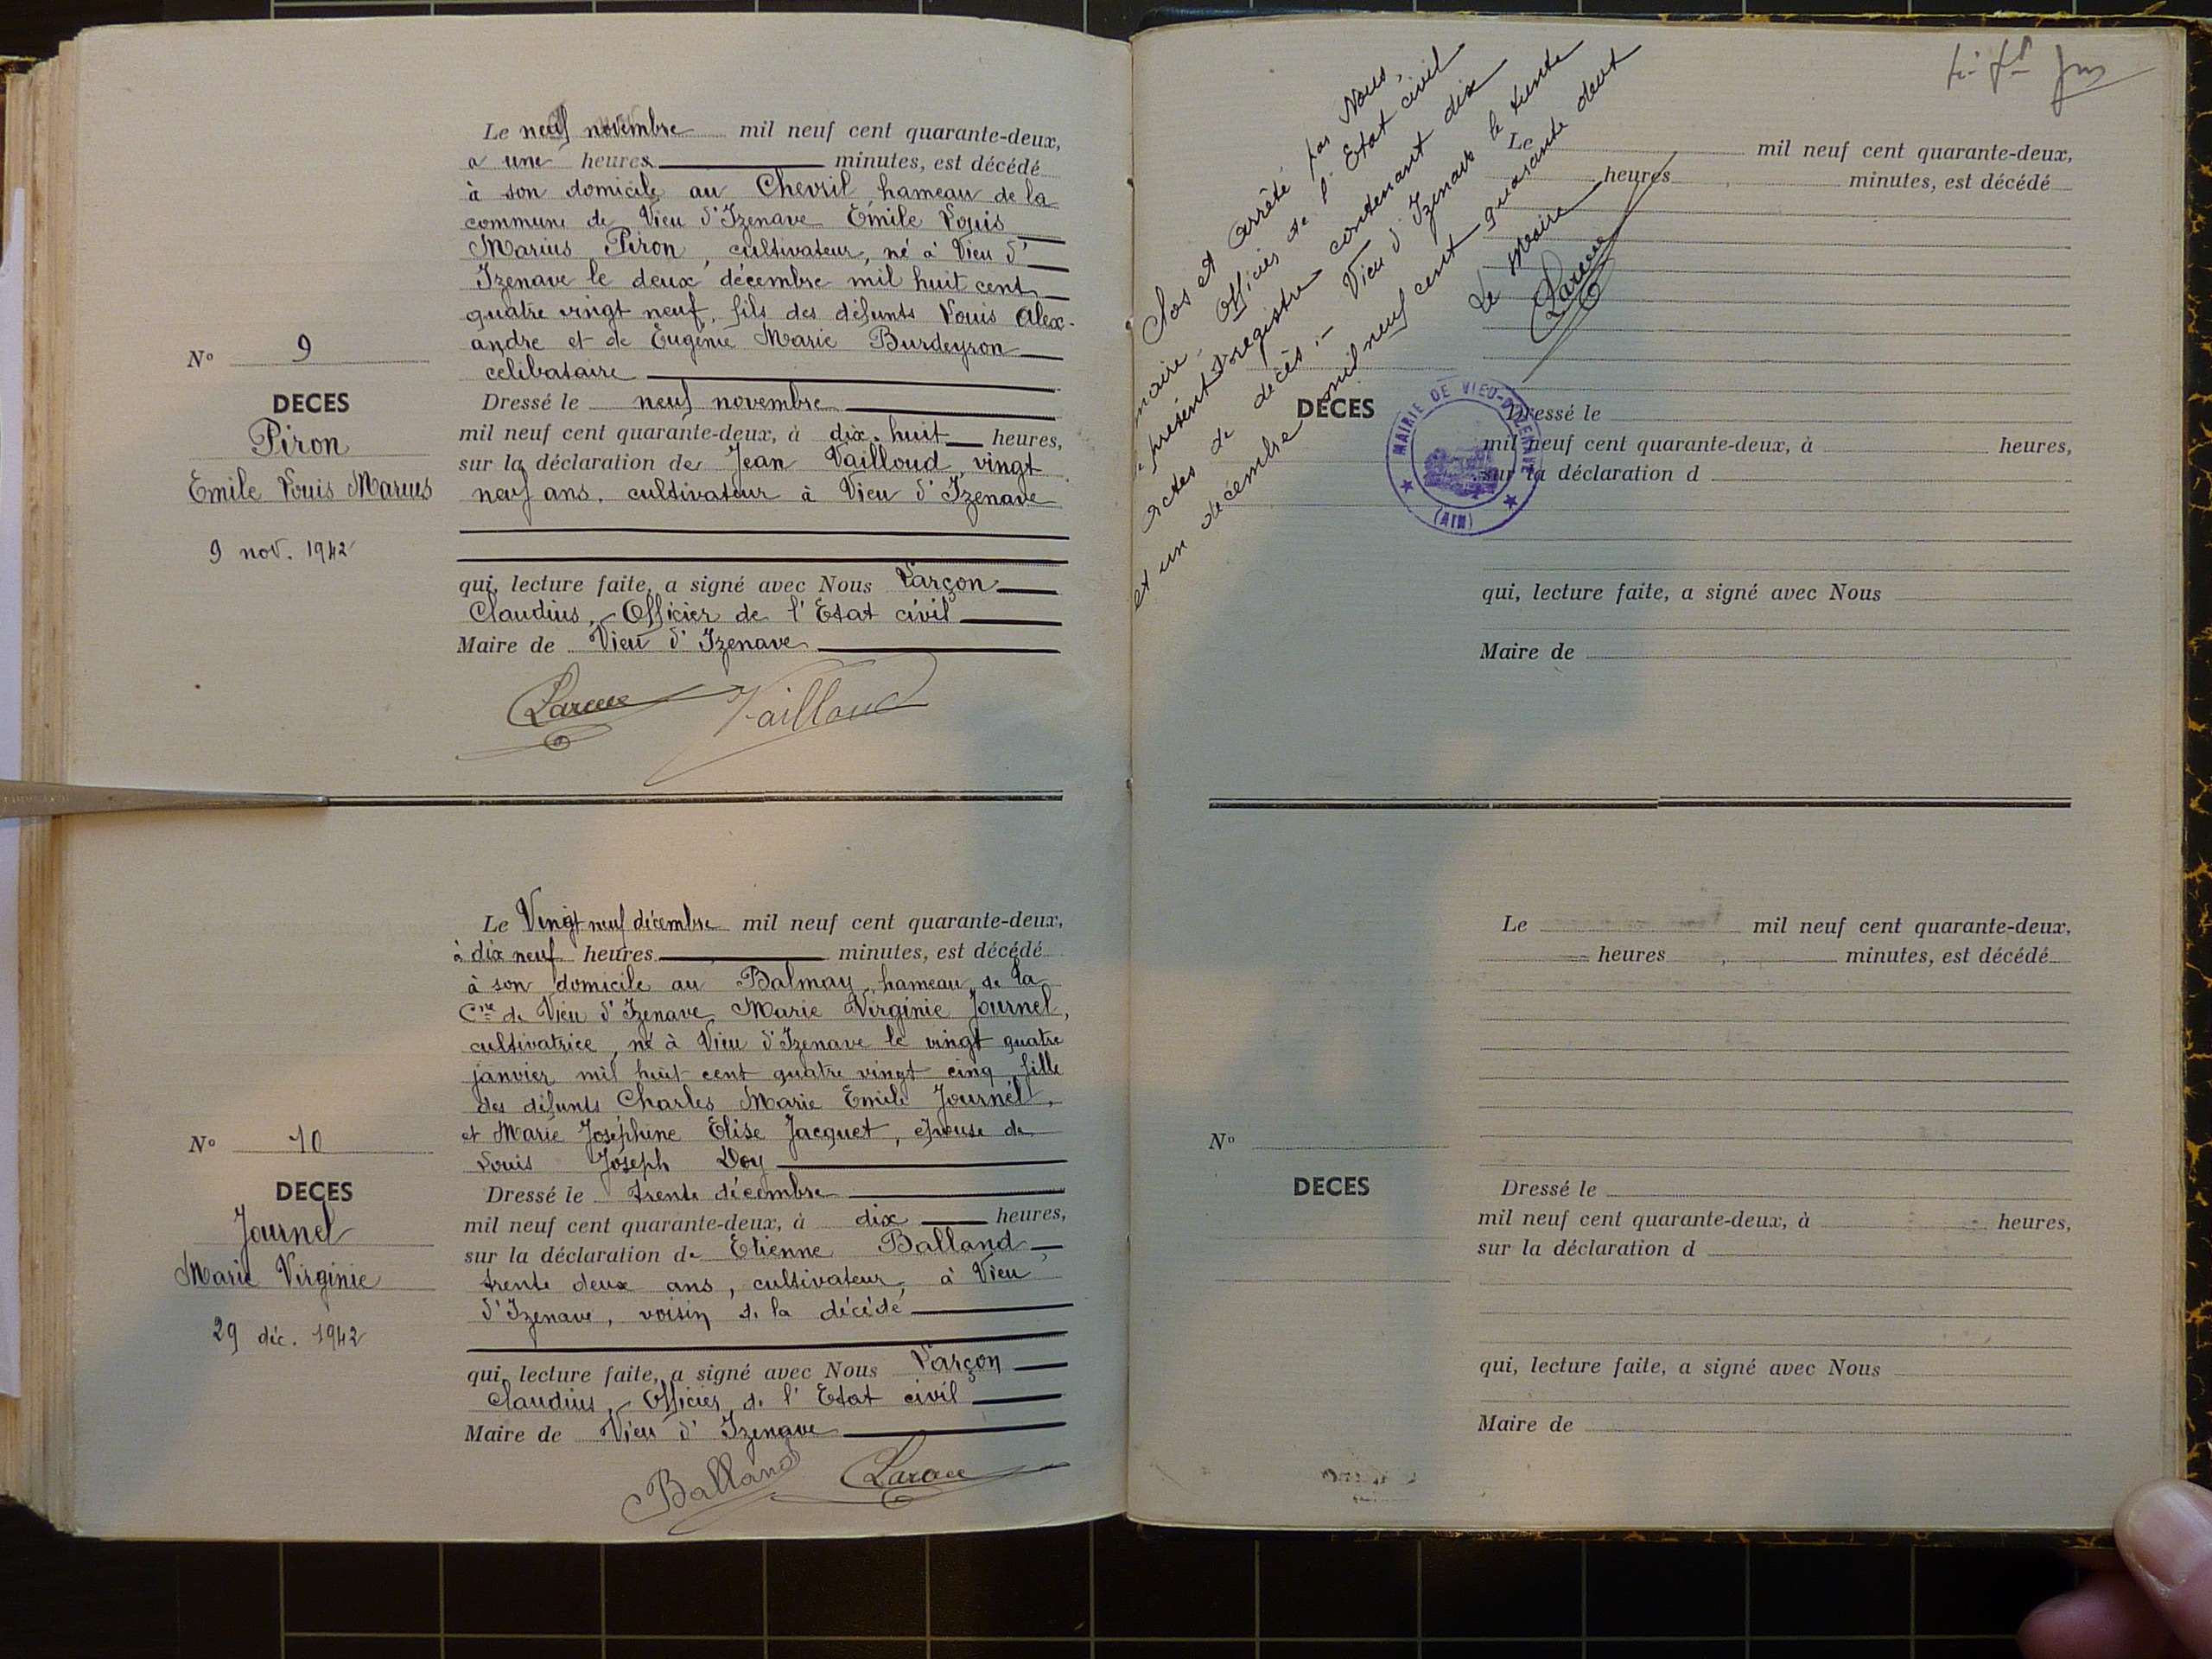 Le neuf novembre mil neuf cent quarante-deux,
a une heures minutes, est décédé
à son domicile au Chevril hameau de la
commune de Vieu d'Izenave Emile Louis
Marius Piron, cultivateur, né à Vieu d'
Izenave le deux décembre mil huit cent
quatre vingt neuf, fils des défunts Louis Alex-
andre et de Eugénie Marie Burdeyron
celibataire
N° 9
DECES
Piron
Emile Louis Marius
9 nov. 1942
Dressé le neuf novembre
mil neuf cent quarante-deux, à dix-huit heures,
sur la déclaration de Jean Vailloud, vingt
neuf ans, cultivateur à Vieu d'Izenave
qui, lecture faite, a signé avec Nous Larçon
Claudius, Officier de l'Etat civil
Maire de Vieu d'Izenave
Vailloud
Le Vingt neuf décembre mil neuf cent quarante-deux,
à dix neuf heures minutes, est décédé
à son domicile au Balmay, hameau de la
Cne de Vieu d'Izenave Marie Virginie Journel,
cultivatrice, né à Vieu d'Izenave le vingt quatre
janvier mil huit cent quatre vingt cinq, fille
des défunts Charles Marie Emile Journel,
et Marie Joséphine Elise Jacquet, épouse de
Louis Joseph Doy
N° 10
DECES
Journel
Marie Virginie
29 déc. 1942
Dressé le trente décembre
mil neuf cent quarante-deux, à dix heures,
sur la déclaration de Etienne Balland
trente deux ans, cultivateur, à Vieu
d'Izenave, voisin de la décédé
qui, lecture faite, a signé avec Nous Larçon
Claudius, Officier de l'Etat civil
Maire de Vieu d'Izenave
Balland
Clos et arrêté par Nous,
maire, Officier de l'Etat civil
présent registre contenant dix
actes de décès.- Vieu d'Izenave le trente
et un décembre mil neuf cent quarante deux
Le Maire
MAIRIE DE VIEU-D'IZENAVE
(AIN)
Le mil neuf cent quarante-deux,
heures, minutes, est décédé
DECES
Dressé le
mil neuf cent quarante-deux, à heures,
sur la déclaration d
qui, lecture faite, a signé avec Nous
Maire de
Le mil neuf cent quarante-deux,
heures, minutes, est décédé
N°
DECES
Dressé le
mil neuf cent quarante-deux, à heures,
sur la déclaration d
qui, lecture faite, a signé avec Nous
Maire de